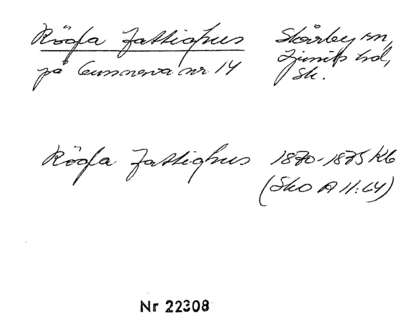 Rögla Fattighus Skårby sn,
på Gunnarva nr 14 Ljunits hd,
Sk.
Rögla Fattighus 1870-1875 Kb
(Sko A II:64)
Nr 22308